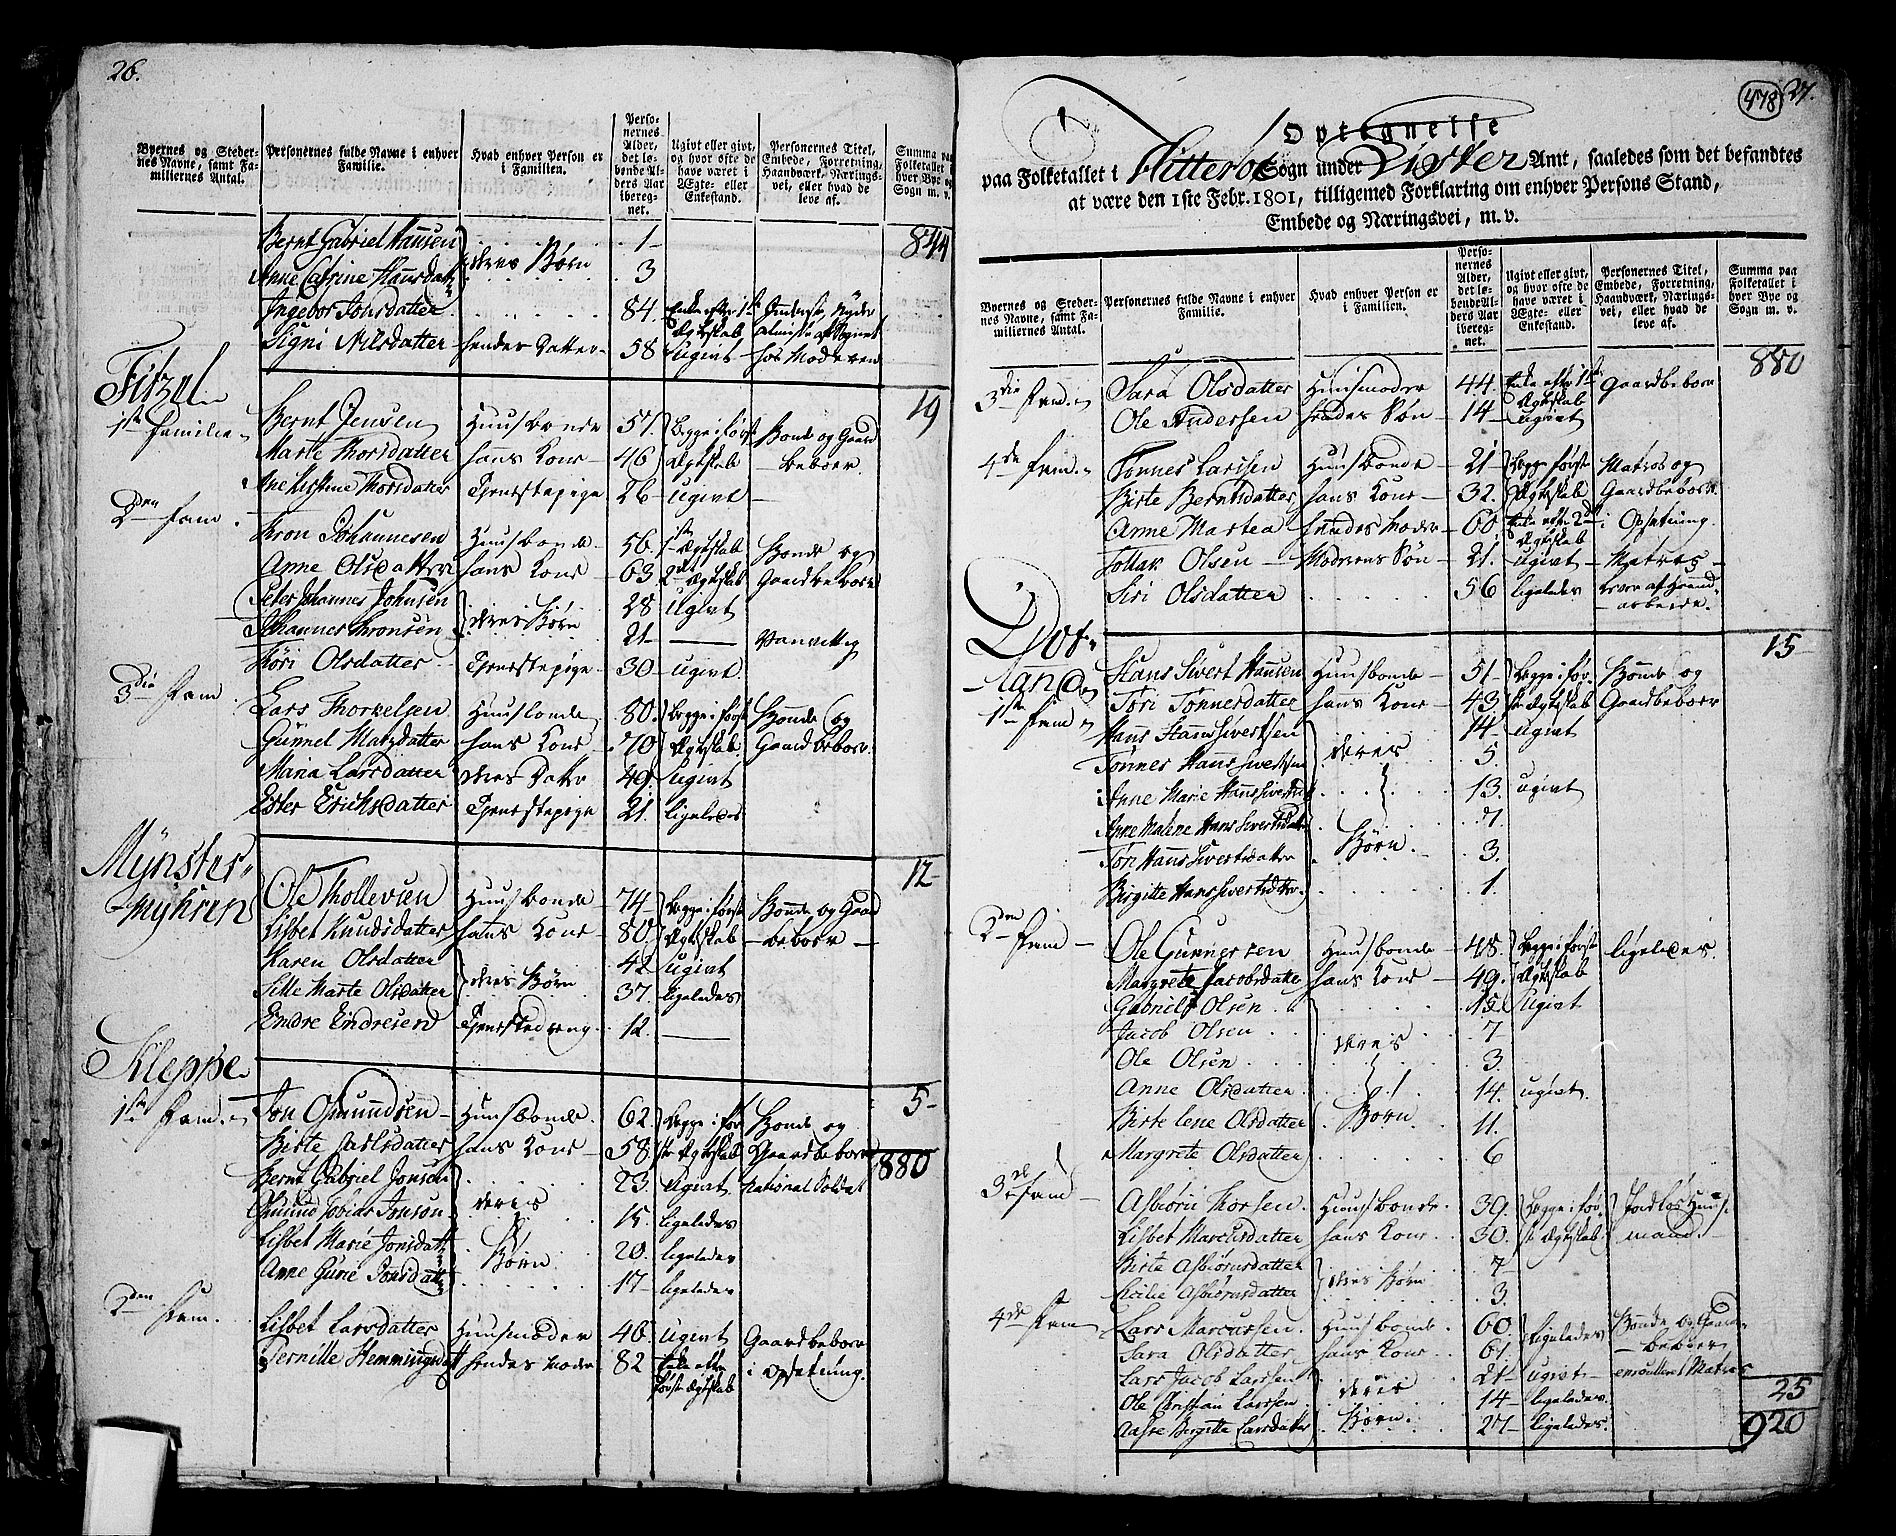 26.
Byernes og Stedernes Navne, samt Familiernes Antal.
Personernes fulde Navne i enhver Familie.
Hvad enhver Person er i Familien.
Personernes Alder, det lebende Alders Aar iberegnet.
Ugivt eller givt, og hvor ofte de have været i Ægte- eller Enkestand.
Personernes Titel, Embede, Forretning, Haandværk, Næringsvei, eller hvad de leve af.
Summa paa Folketallet i hver Bye og Sogn m. v.
Bernt Gabriel Hansen deres Børn 1 844
Anne Catrine Hansdatter 3
Ingebor Jonsdatter 84. Enke efter 1ste Ægteskab
Signi Nilsdatter hendes Datter 58 ugivt hos Moderen
Fitzel 19
1ste Familie Bernt Jensen Huusbonde 57. Begge i første Bonde og Gaard
Marte Thorsdatter hans Kone 46 Ægteskab beboer.
Ane Kirstine Thorsdatter Tjenestepige 26 ugivt
2den Fam. Thron Johannesen Huusbonde 56. 1ste Ægteskab Bonde og
Anne Olsdatter hans Kone 63. 2det Ægteskab Gaardbeboer
Peter Johannes Johnsen deres Børn 28 ugivt
Johannes Thronsen 21 Vanvittig
Siri Olsdatter Tjenestepige 30 ugivt
3die Fam. Lars Thorkelsen Huusbonde 80. Begge i første Bonde og
Gunnel Matzdatter hans Kone 70 Ægteskab Gaardbeboer
Maria Larsdatter deres Datter 49. ugivt
Ester Ericksdatter Tjenestepige 21. ligeledes
Mynster- 12
myhren Ole Thollevsen Huusbonde 74 Begge i første Bonde og Gaard
Lisbet Knudsdatter hans Kone 80. Ægteskab beboer
Karen Olsdatter deres Børn 42 ugivt
Sille Marte Olsdatter 37. ligeledes
Endre Endresen Tjenestedreng 12.
Kleppe 5
1ste Fam. Jon Osmundsen Huusbonde 62. Begge i før Bonde og
Birte Carlsdatter hans Kone 58 ste Ægteskab Gaardbeboer 880
Bernt Gabriel Jonsen deres 23. Ugivt National Soldat
Osmund Tobias Jonson 15. ligeledes
Lisbet Marie Jonsdatter Børn 20. ligeledes
Anne Gurie Jonsdatter 17 ligeledes
2den Fam. Lisbet Larsdatter Huusmoder 46. ugivt Gaardbeboer
Pernille Hemmingsdatter hendes Moder 82 Enke efter i Opsetning.
første Ægteskab
478 27.
Optegnelse
paa Folketallet i Hitteröe Sogn under Lister Amt, saaledes som det befandtes
at være den 1ste Febr. 1801, tilligemed Forklaring om enhver Persons Stand,
Embede og Næringsvei, m. v.
Byernes og Stedernes Navne, samt Familiernes Antal.
Personernes fulde Navne i enhver Familie.
Hvad enhver Person er i Familien.
Personernes Alder, det lebende Alders Aar iberegnet.
Ugivt eller givt, og hvor ofte de have været i Ægte- eller Enkestand.
Personernes Titel, Embede, Forretning, Haandværk, Næringsvei, eller hvad de leve af.
Summa paa Folketallet i hver Bye og Sogn m. v.
880
3die Fam. Sara Olsdatter Huusmoder 44. Enke efter 1ste Ægteskab Gaardbeboer
Ole Andersen hendes Søn 14 ugivt
4de Fam. Tønnes Larssen Huusbonde 21 Begge første Matros og
Birte Berntsdatter hans Kone 32. Ægteskab Gaardbeboer
Anne Martea hendes Moder 60 Enke efter 2det Ægteskab i Opsetning.
Tollak Olsen Moderens Søn 21. ugivt Matros
Siri Olsdatter 56 ligeledes lever af Haand
arbeide.
15
1ste Fam Hans Sivert Hansen Huusbonde 51 Begge i før Bonde og
Tøri Tønnesdatter hans Kone 43 ste Ægteskab Gaardbeboer
Hans Hans Sivertsen deres 14 ugivt
Tønnes Hans Sivertsen 5.
Anne Marie Hans Sivertsd 13. ugivt
Anne Malene Hans Sivertsdatter 7.
Tøri Hans Sivertsdatter Børn 3.
Birgitte Hans Sivertsdatter 1.
2den Fam Ole Gunnersen Huusbonde 48. Begge i første ligeledes.
Margrete Jacobsdatter hans Kone 49. Ægteskab
Gabriel Olsen 15. Ugivt
Jacob Olsen deres 7
Ole Olsen 3.
Anne Olsdatter 14. ugivt.
Birte Lene Olsdatter Børn 11.
Margrete Olsdatter 6
3de Fam Asbiørn Thorsen Huusbonde. 39. Begge i før Jordløs Huus
Lisbet Marcusdatter hans Kone 30. ste Ægteskab mand.
Birte Asbiørnsdatter deres Børn 7
Cicilie Asbiørnsdatter 3.
4de Fam Lars Marcussen Huusbonde 60. ligeledes Bonde og Gaard
Sara Olsdatter hans Kone 61. beboer
Lars Jacob Larssen deres 21 ugivt enroulleret Matros
Ole Christian Larssen 14 ligeledes. 25
Aase Birgitte Larsdatter Børn. 27 ligeledes. 920